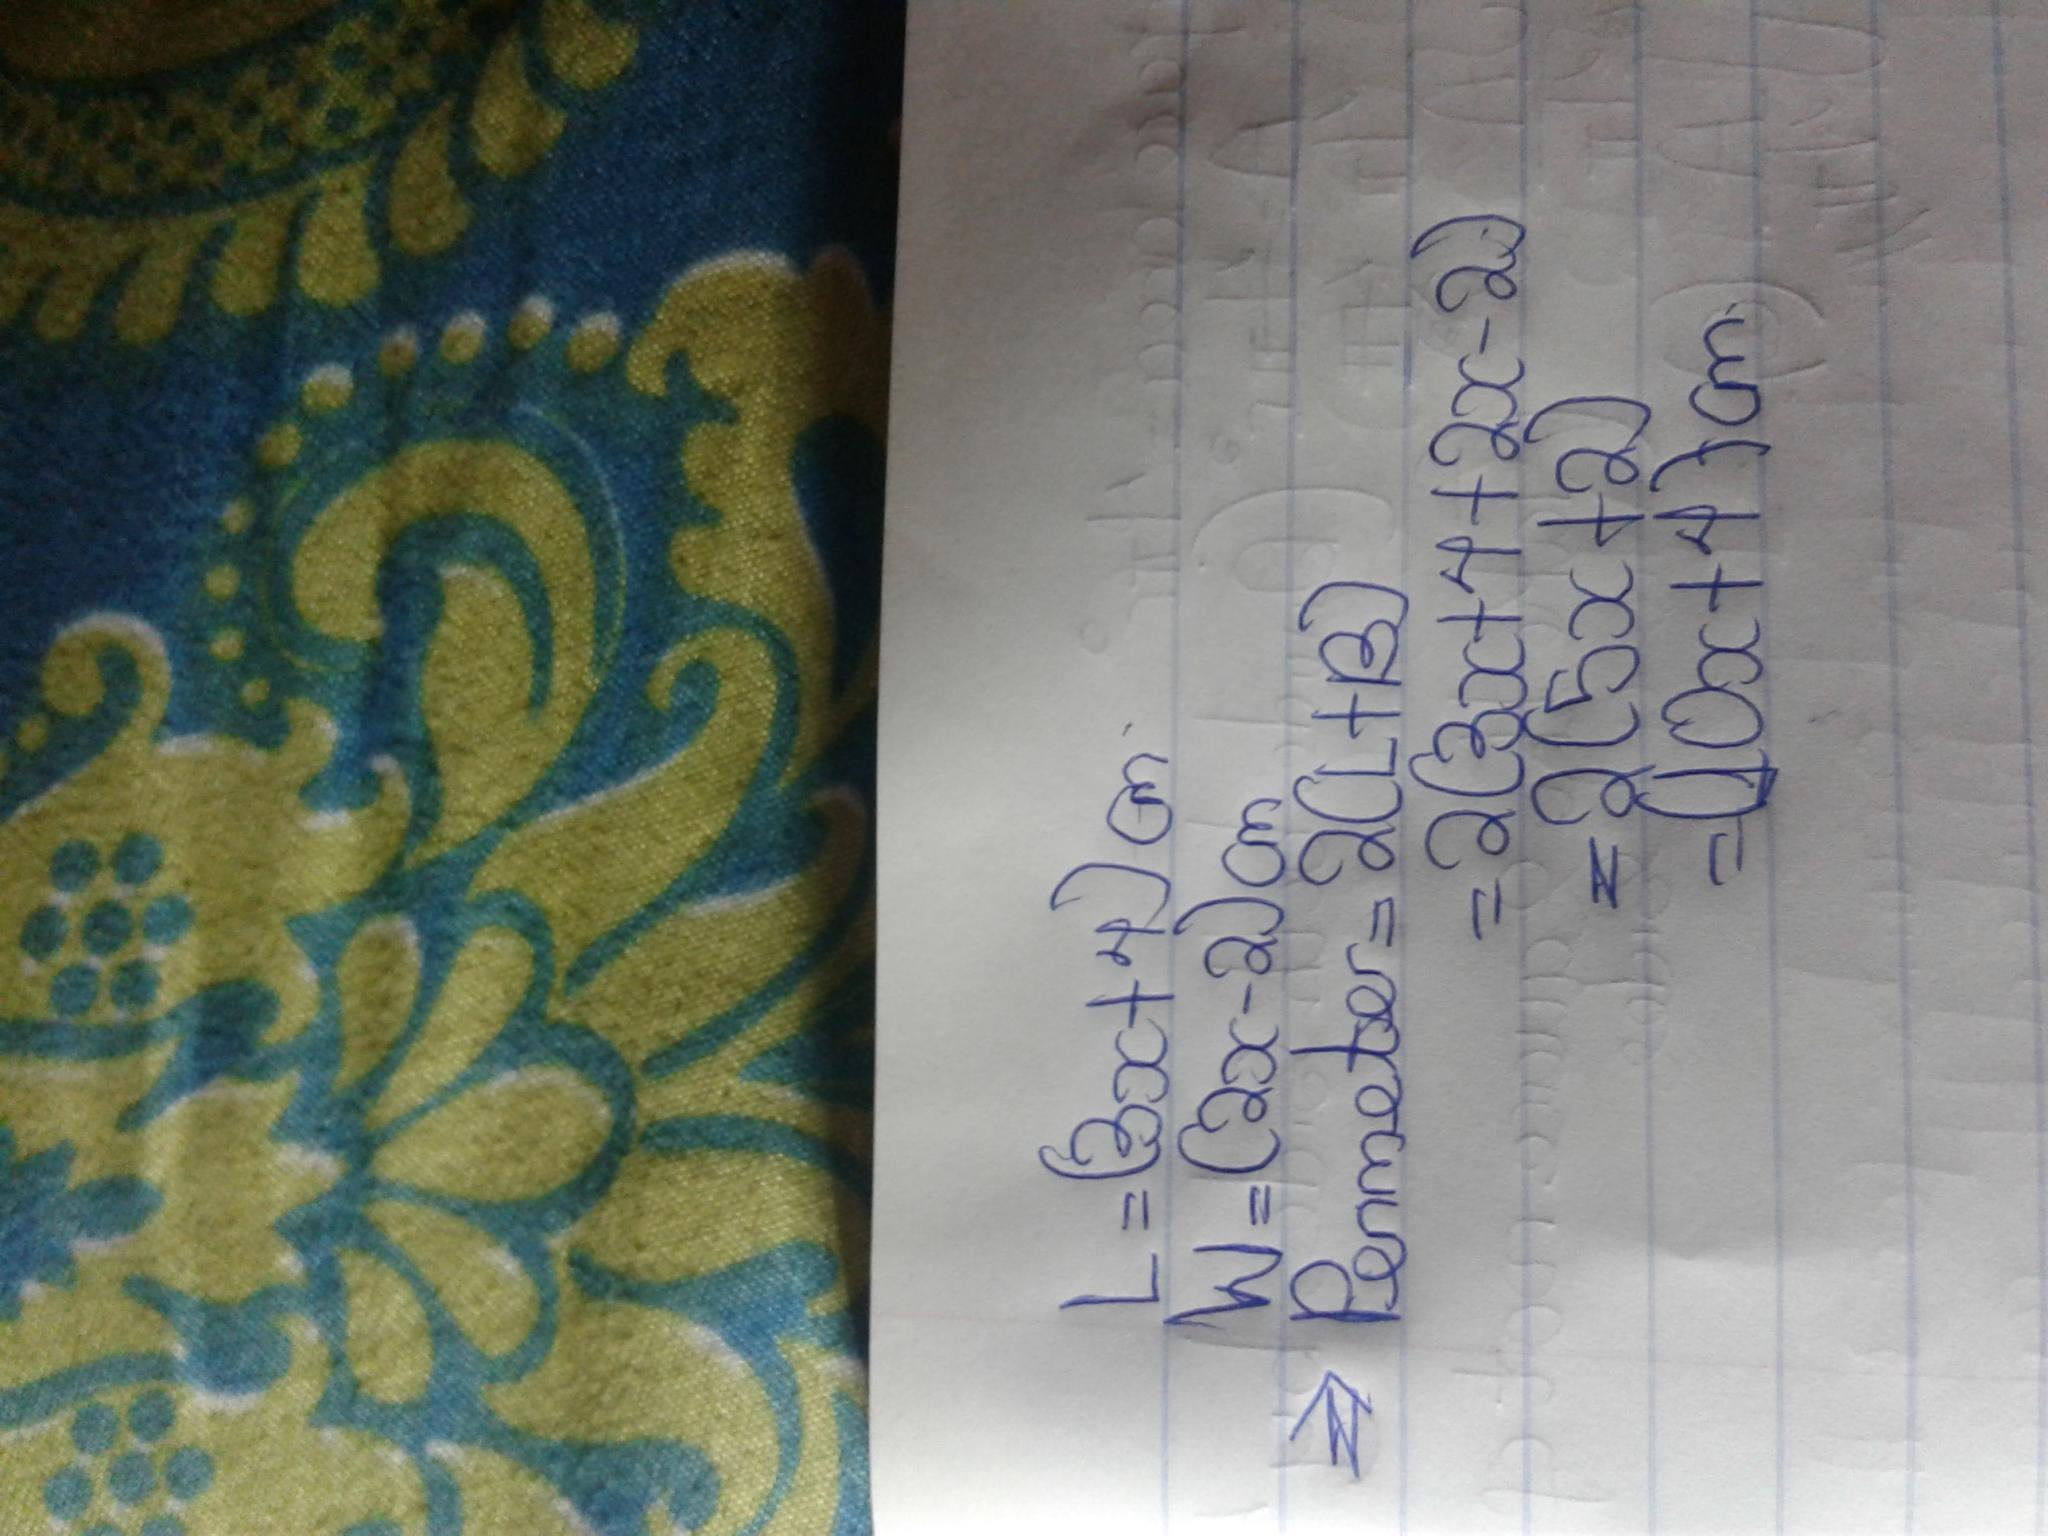 L = (3x+4) cm
W = (2x-2) cm
⇒ Perimeter = 2(L+B)
= 2(3x+4+2x-2)
= 2(5x+2)
= (10x+4) cm